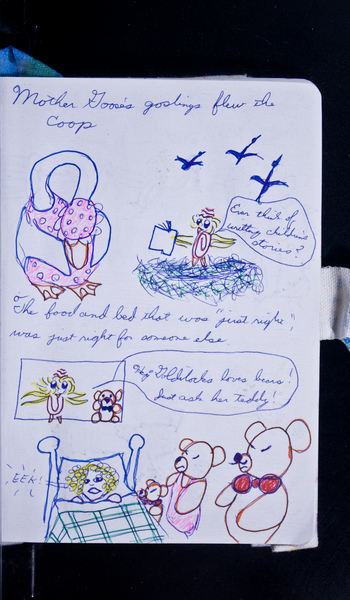 Mother Goose's goslings flew the
Coop
Ever think of
writing children's
stories?
or
The food and bed that was "just right",
was just right for someone else
Hey Goldilocks loves bears!
Just ask her teddy!
EEK!